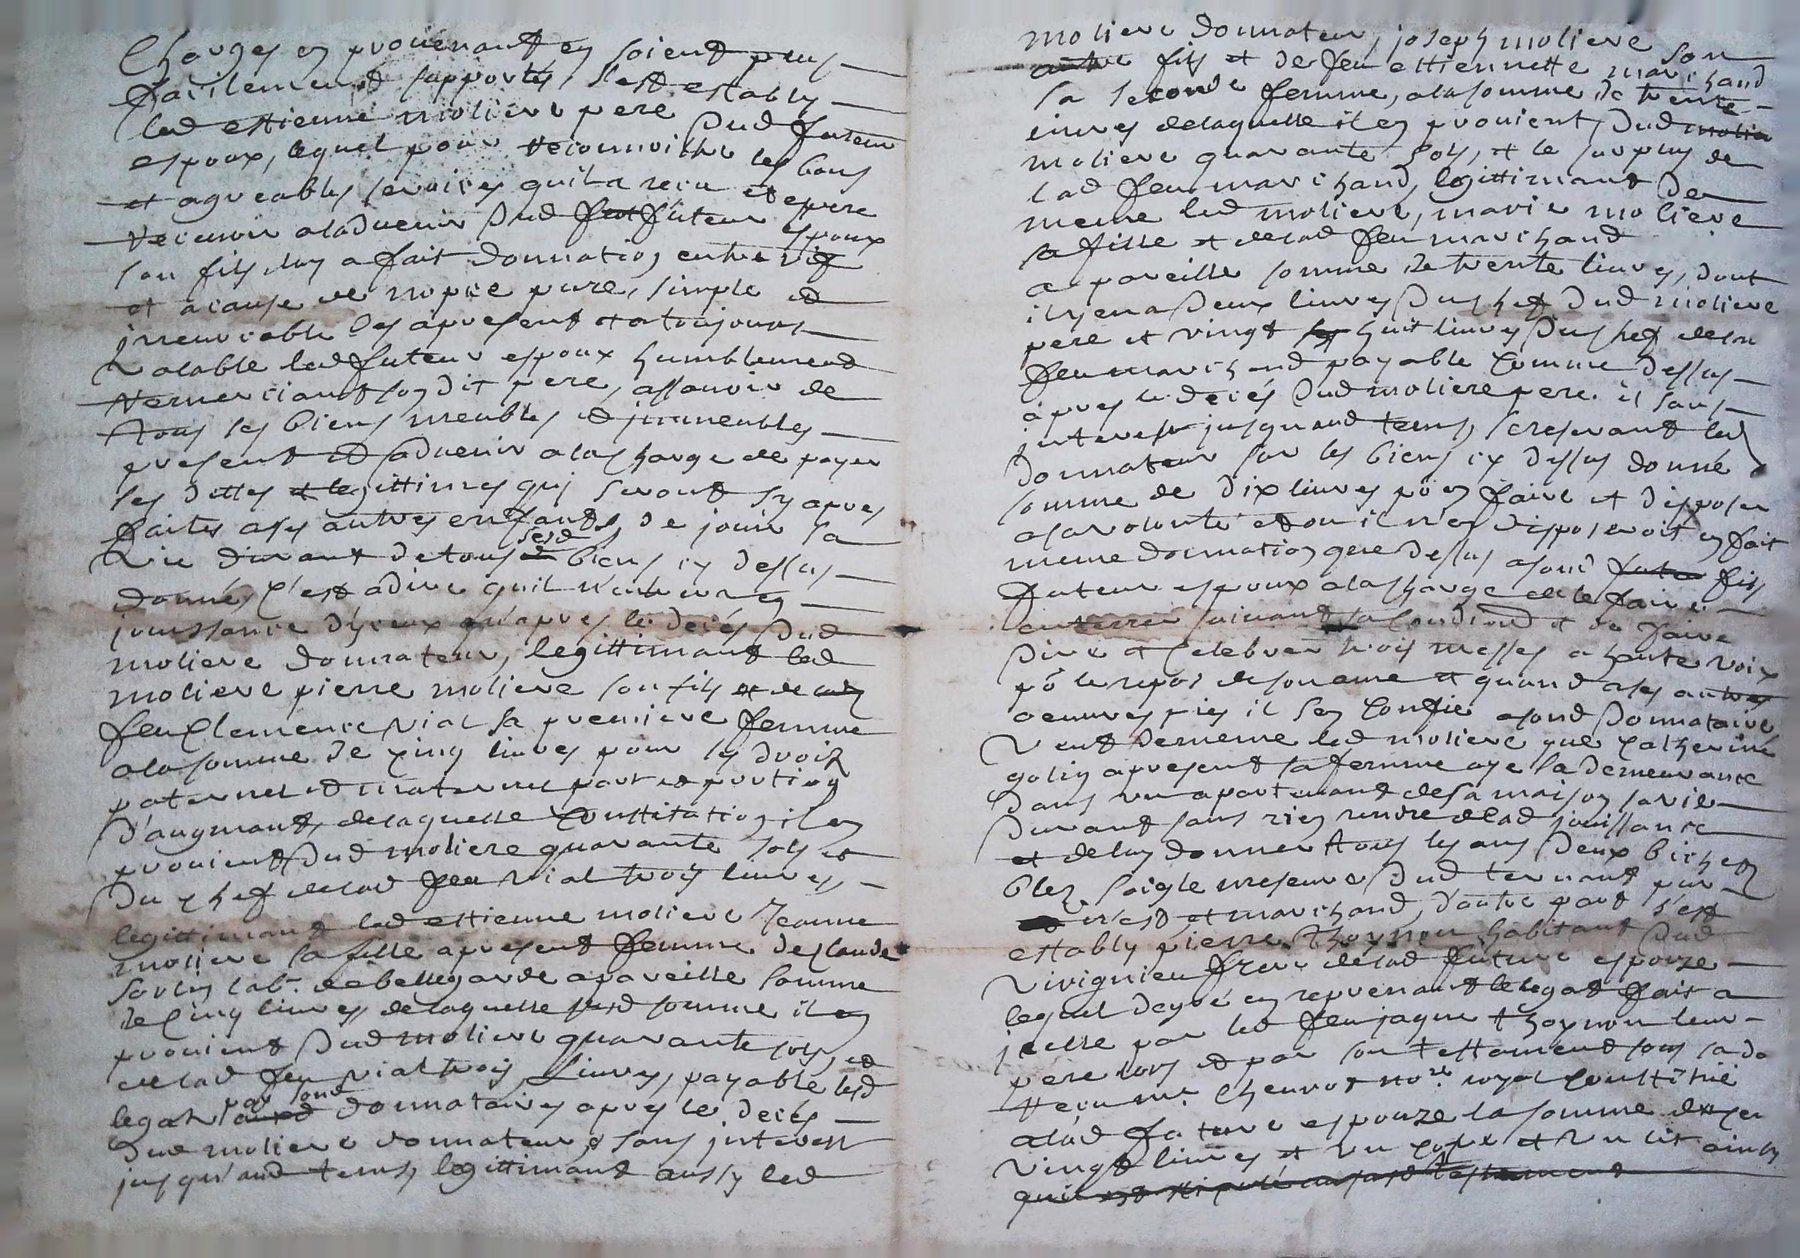 Charges en provenant en soient plus
facilement supportés, s'est establi
led estienne moliere pere dud futeur
espoux, lequel pour reconnoistre les bons
et agreables services quil a receu et espere
recevoir aladvenir dud futeur espoux
son fils luy a fait donnation entre vif
et a cause de nopce pure, simple et
irrevocable des apresent et atoujours
valable led futeur espoux humblement
remerciant son dit pere, assavoir de
tous ses biens meubles et immeubles
present et advenir alacharge de payer
ses dettes et legittimes qui seront sy apres
faites ases autres enfants, de jouir sa
vie durant de tous sesd biens cy dessus
donnés, c'est adire quil n'entrera en
jouissance d'yceux qu'apres le decés dud
moliere donnateur, legittimant led
moliere pierre moliere son fils et de
feu Clemence vial sa premiere femme
alasomme de cinq livres pour ses droits
paternel et maternel part et portion
d'augmant, delaquelle constitution il en
provient dud moliere quarante sols et
du chef delad feu vial trois livres,
legittimant led estienne moliere Jeanne
moliere sa fille apresent femme de claude
labr. de bellegarde apareille somme
de cinq livres, delaquelle somme il en
provient dud moliere quarante sols, et
delad feu vial trois livres, payable lesd
legats par sond donnataire apres le decés
dud moliere donnateur, et sans interest
jusqu'aud temps, legittimant aussy led
moliere donnateur, joseph moliere son
autre fils et de feu estiennette marchand
sa seconde femme, alasomme de trente
livres delaquelle il en provient dud
moliere quarante sols, et le surplus de
lad feu marchand, legittimant de
meme led moliere, marie moliere
sa fille et delad feu marchand
a pareille somme de trente livres, dont
il y en a deux livres du chef dud moliere
pere et vingt huit livres du chef delad
feu marchand payable comme dessus
apres le decés dud moliere pere. et sans
interest jusquaud temps, se reservant led
donnateur sur les biens cy dessus donné
somme de dix livres pr en faire et disposer
asavolonté et ou il n'en disposeroit en fait
meme donnation que dessus asond fils
futeur espoux alacharge de le faire
enterrer suivant sa condition et de faire
dire et celebrer trois messes a haute voix
pr le repos de son ame et quand ases autres
oeuvres pies il s'en confie asond donnataire
veut dememe led moliere que catherine
golin apresent sa femme aye sa demeurance
dans un apartemant de sa maison savie
durant sans rien rendre delad jouissance
et deluy donner tous les ans deux bichets
bled soigle mesure dud
et marchand, d'autre part s'est
establi pierre Thoynon habitant dud
vivignieu frere delad future espouse
lequel de gré en reprenant le legat fait a
icelle par led feu jaque thoynon leur
pere lors et par son testament sous sa date
receu me. Chevrot nore. royal constitue
alad future espouze la somme de
vingt livres et un cofre et un lit ainsy
quil est stipulé aususd testament